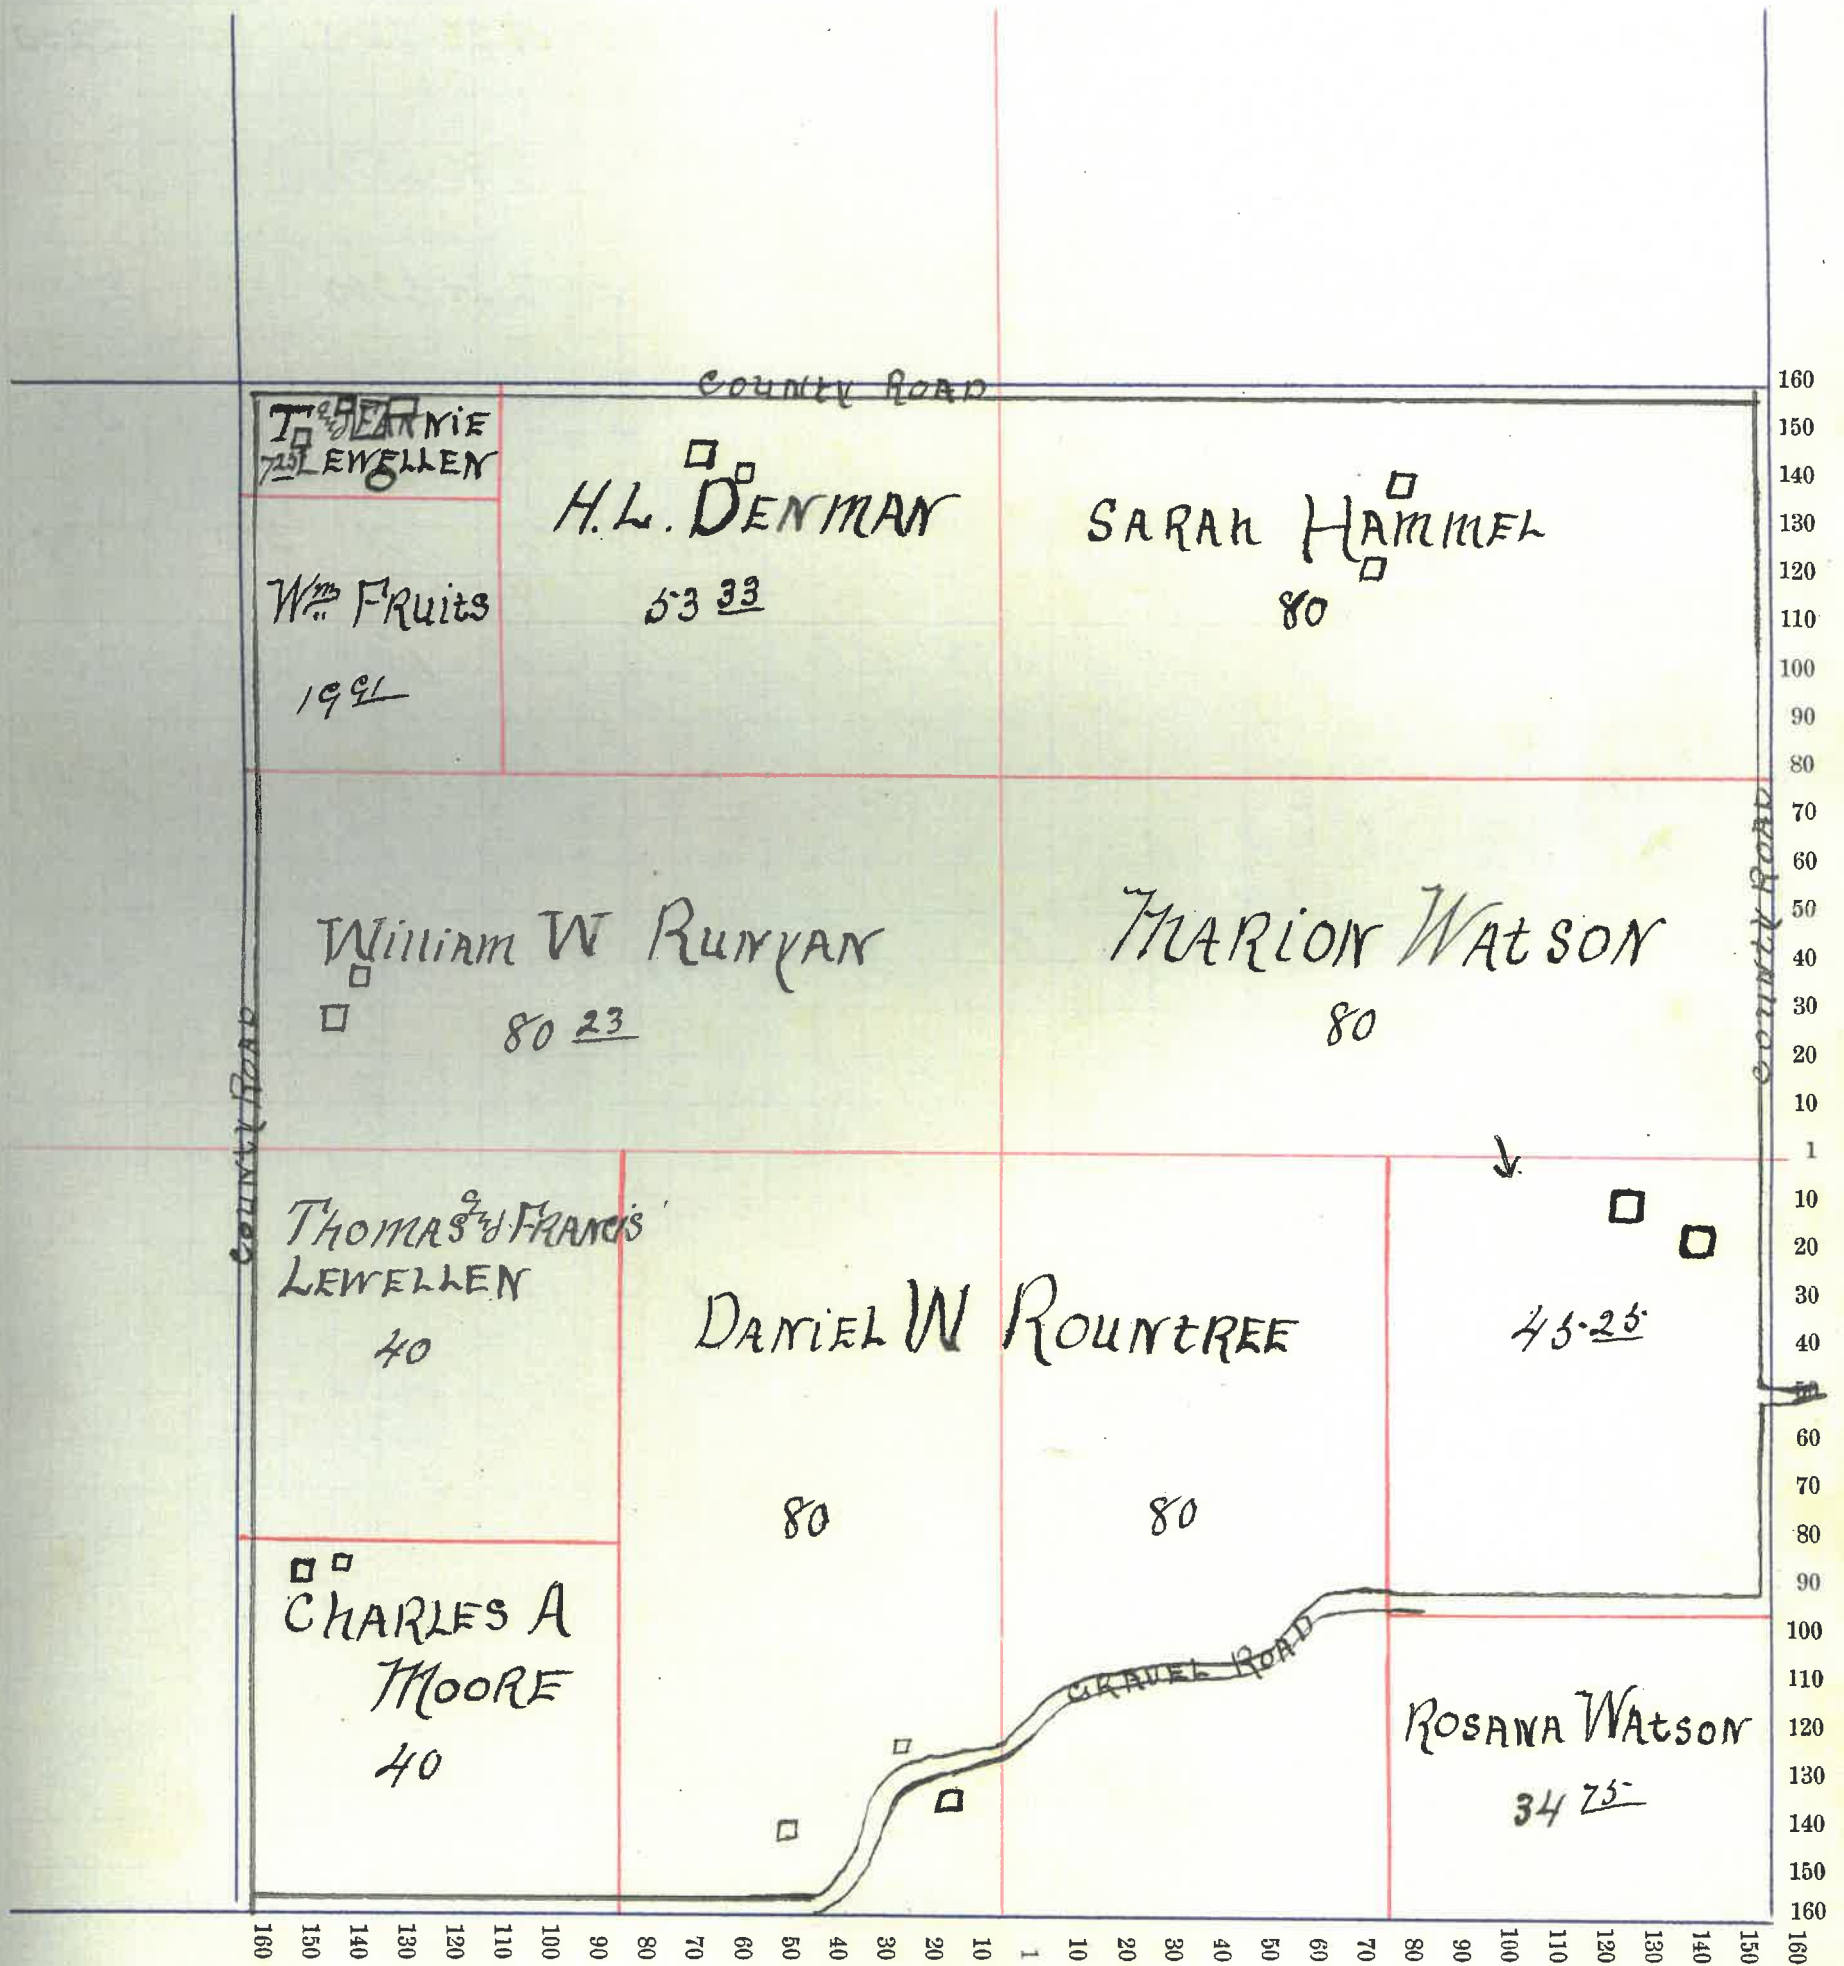 COUNTY ROAD
T and JEANNIE
7 25 LEWELLEN
H.L. DENMAN
53 33
SARAH HAMMEL
80
Wm FRUITS
19 91
WILLIAM W RUNYAN
80 23
MARION WATSON
80
COUNTY ROAD
COUNTY ROAD
THOMAS and FRANCIS
LEWELLEN
40
DANIEL W ROUNTREE
80
80
45 25
CHARLES A
MOORE
40
GRAVEL ROAD
ROSANA WATSON
34 75
160
150
140
130
120
110
100
90
80
70
60
50
40
30
20
10
1
10
20
30
40
50
60
70
80
90
100
110
120
130
140
150
160
160 150 140 130 120 110 100 90 80 70 60 50 40 30 20 10 1 10 20 30 40 50 60 70 80 90 100 110 120 130 140 150 160